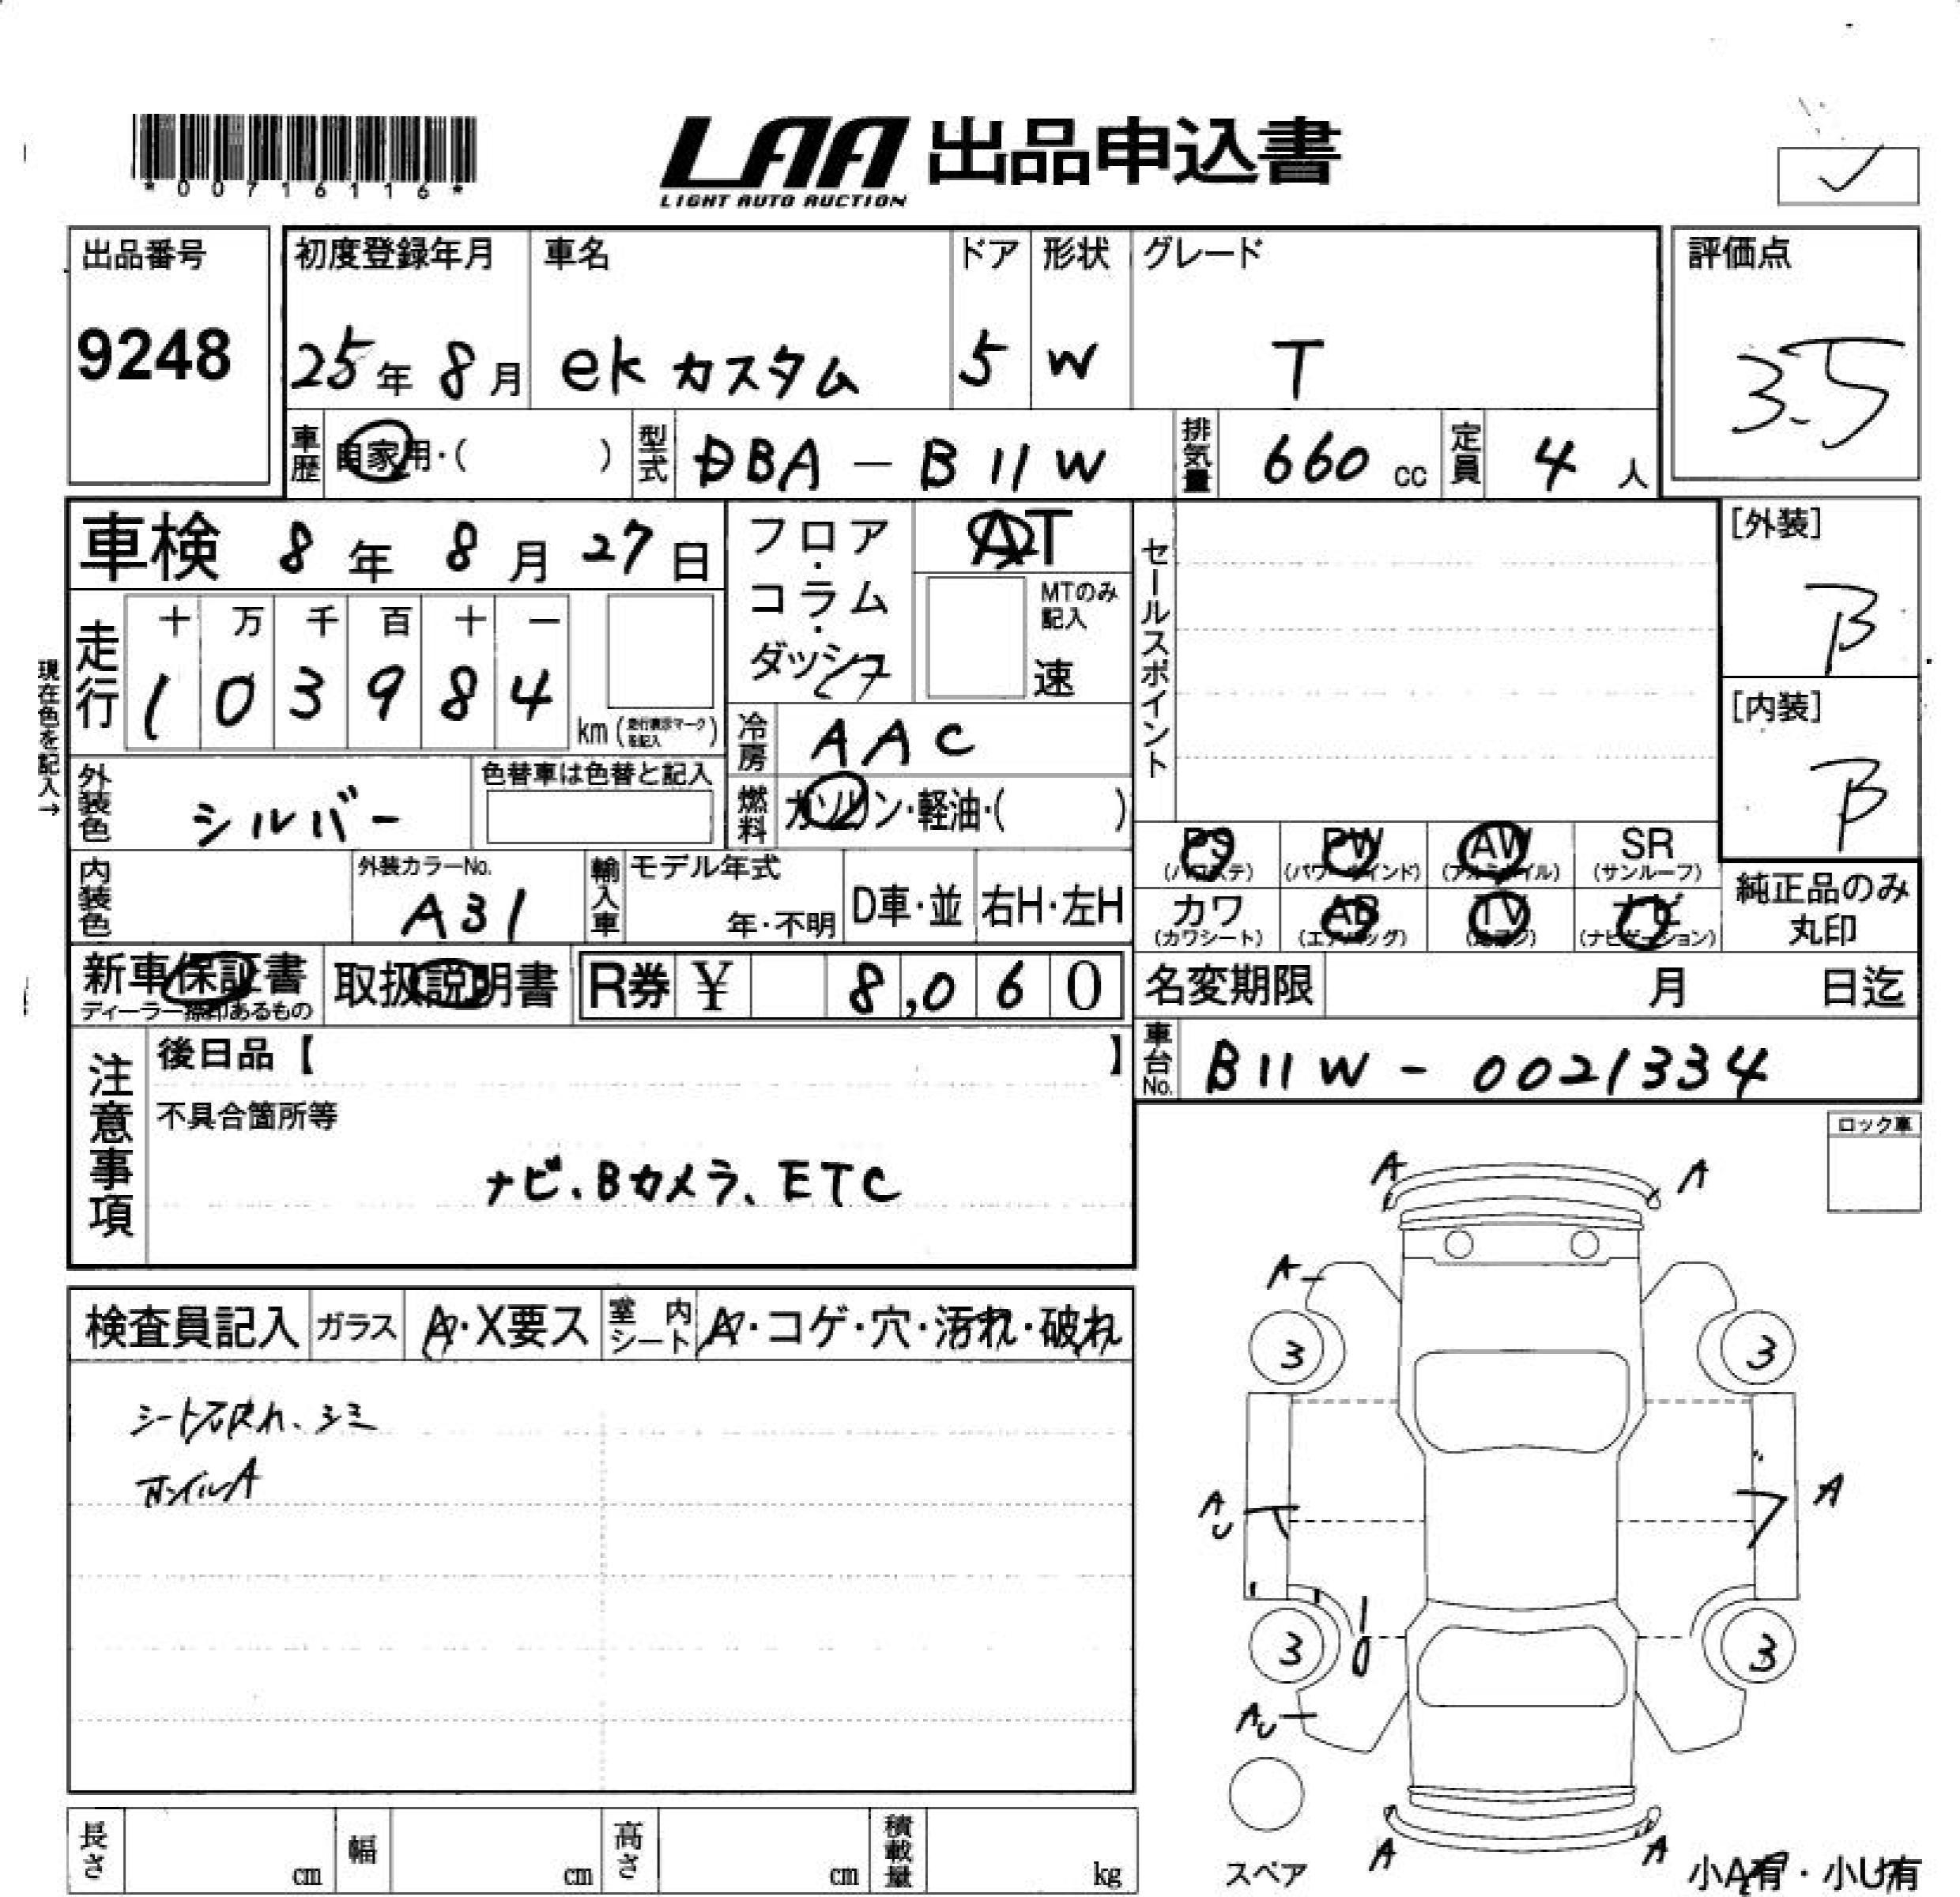 *00716116*
LAA 出品申込書
LIGHT AUTO AUCTION
出品番号
9248
初度登録年月 車名 ドア 形状 グレード
25年 8月 ek カスタム 5 W T
評価点
3.5
車歴 自家用・( ) 型式 DBA - B11W 排気量 660 cc 定員 4 人
車検 8年 8月 27日
フロア・コラム・ダッシュ
AT
MTのみ記入
速
セールスポイント
[外装]
B
[内装]
B
現在色を記入→
走行 十 万 千 百 十 一
1 0 3 9 8 4
km (走行表示マークを記入)
冷房 AAC
外装色 シルバー
色替車は色替と記入
燃料 ガソリン・軽油・( )
PS (パワステ) PW (パワーウインド) AW (アルミホイル) SR (サンルーフ)
カワ (カワシート) AB (エアバッグ) TV (テレビ) ナビ (ナビゲーション)
純正品のみ
丸印
内装色
外装カラーNo.
A31
輸入車 モデル年式
年・不明 D車・並 右H・左H
新車保証書
ディーラー捺印あるもの
取扱説明書 R券 ¥ 8,060
名変期限 月 日迄
車台No. B11W - 0021334
注意事項
後日品【 】
不具合箇所等
ナビ、Bカメラ、ETC
ロック車
検査員記入 ガラス A・X要ス 室内シート A・コゲ・穴・汚れ・破れ
シート破れ、シミ
ホイルA
A A
A
3 3
AU A
3 3
AU
A A
スペア
小A有・小U有
長さ cm 幅 cm 高さ cm 積載量 kg